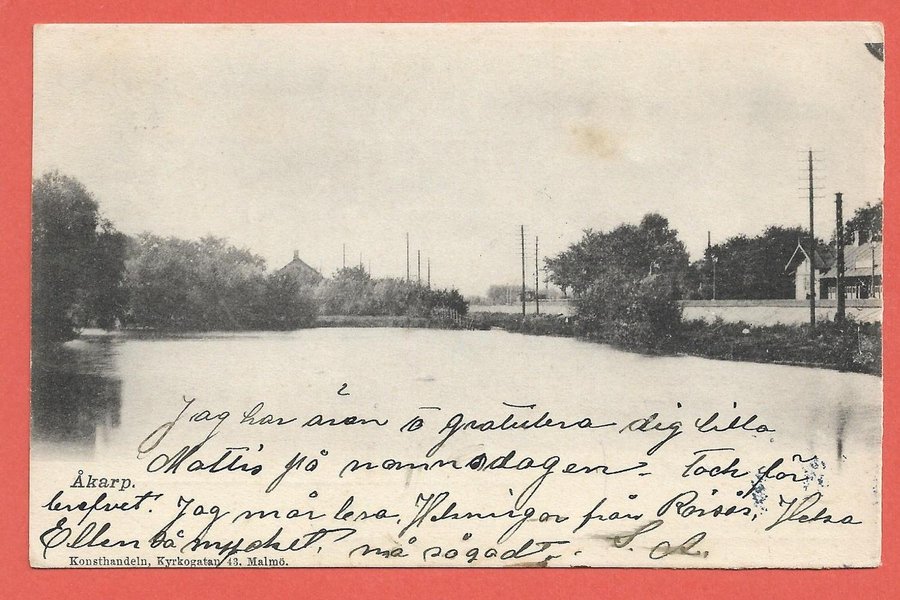 Jag har äran to gratulera dig lilla
Mattis på namnsdagen. Tack för
Åkarp.
brefvet! Jag mår bra. Helsningar från Rörsö, Helsa
Ellen så mycket! må så godt. S. A.
Konsthandeln, Kyrkogatan 43. Malmö.